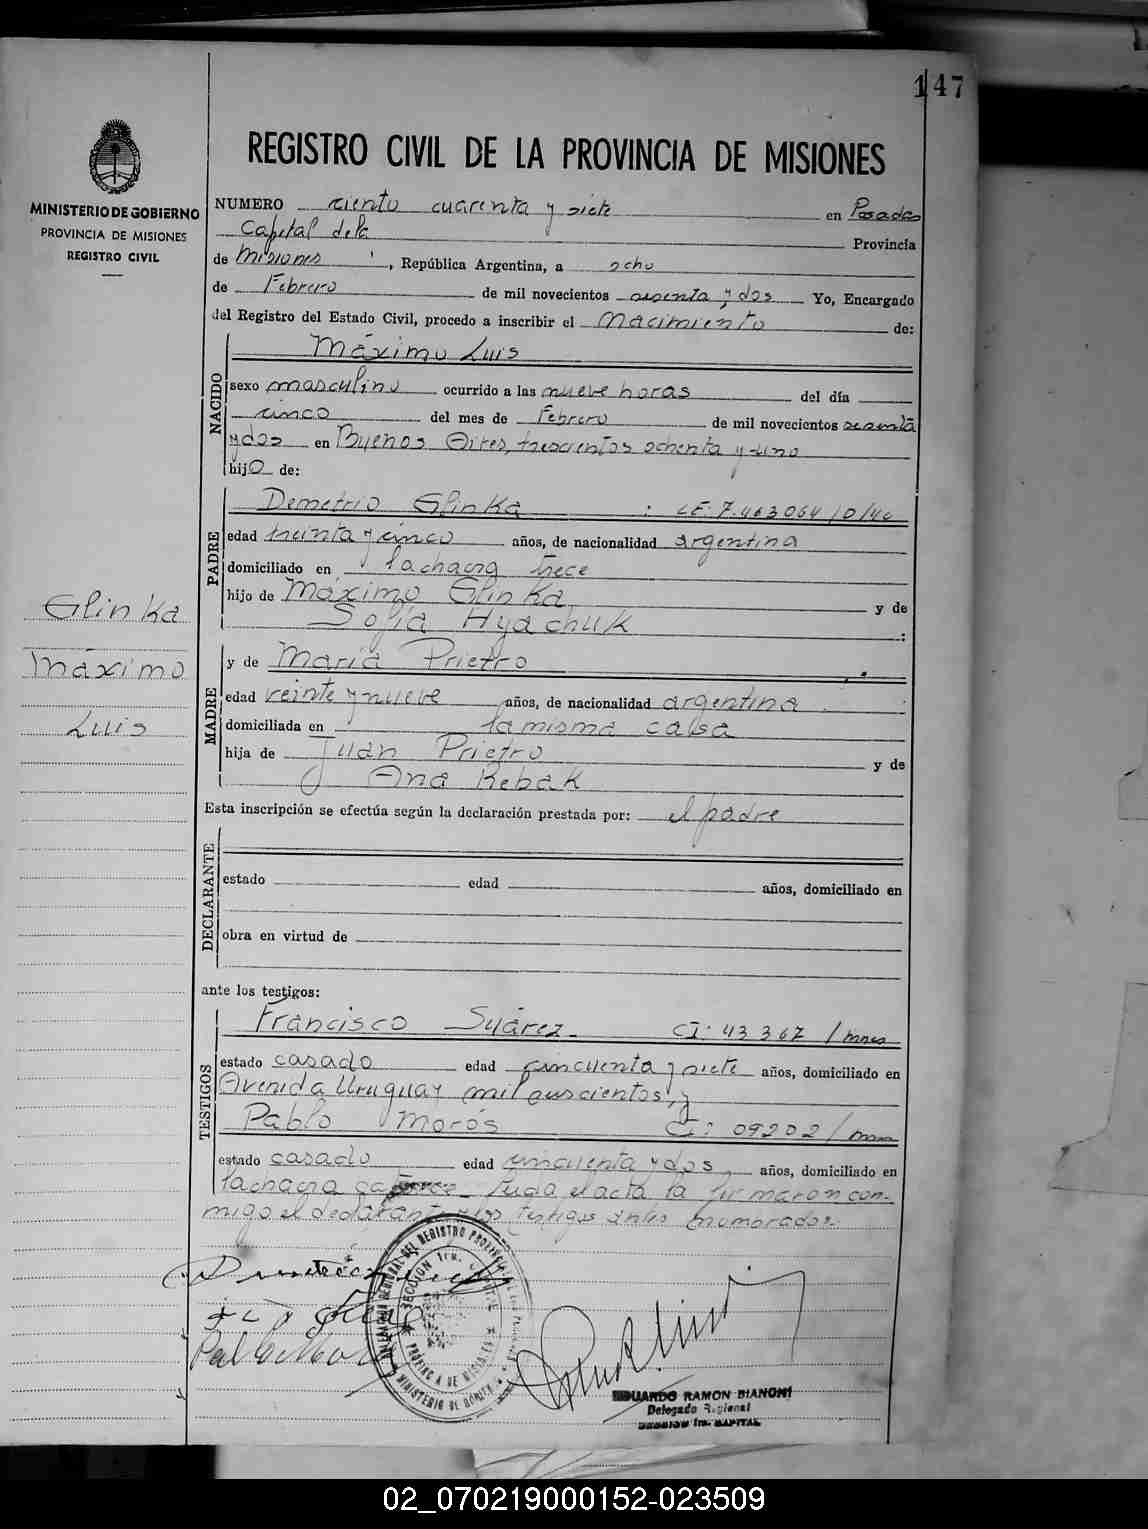 147
REGISTRO CIVIL DE LA PROVINCIA DE MISIONES
MINISTERIO DE GOBIERNO
PROVINCIA DE MISIONES
REGISTRO CIVIL
NUMERO ciento cuarenta y siete en Posadas
Capital dela Provincia
de Misiones, República Argentina, a ocho
de Febrero de mil novecientos sesenta y dos Yo, Encargado
del Registro del Estado Civil, procedo a inscribir el Nacimiento de:
Máximo Luis
NACIDO
sexo masculino ocurrido a las nueve horas del día
cinco del mes de Febrero de mil novecientos sesenta
ydos en Buenos Aires, trescientos ochenta y uno
hijo de:
Demetrio Glinka : CE: 7.463064 /D/40
PADRE
edad treinta y cinco años, de nacionalidad argentina
domiciliado en lachacra trece
hijo de Máximo Glinka y de
Sofía Hyachuk :
Glinka
Máximo
Luis
y de María Prietro
MADRE
edad veinte y nueve años, de nacionalidad argentina
domiciliada en la misma casa
hija de Juan Prietro y de
Ana Rebak
Esta inscripción se efectúa según la declaración prestada por: el padre
DECLARANTE
estado edad años, domiciliado en
obra en virtud de
ante los testigos:
Francisco Suárez CI: 43367 / mnes
TESTIGOS
estado casado edad cincuenta y siete años, domiciliado en
Avenida Uruguay mil
Pablo Morós CI: 09202 /
estado casado edad cincuenta y dos, años, domiciliado en
lachacra catorce. el acta la firmaron con-
migo el declarante y los testigos antes nombrados
EDUARDO RAMON BIANCHI
Delegado Regional
SECCION 1ra. CAPITAL
02_070219000152-023509